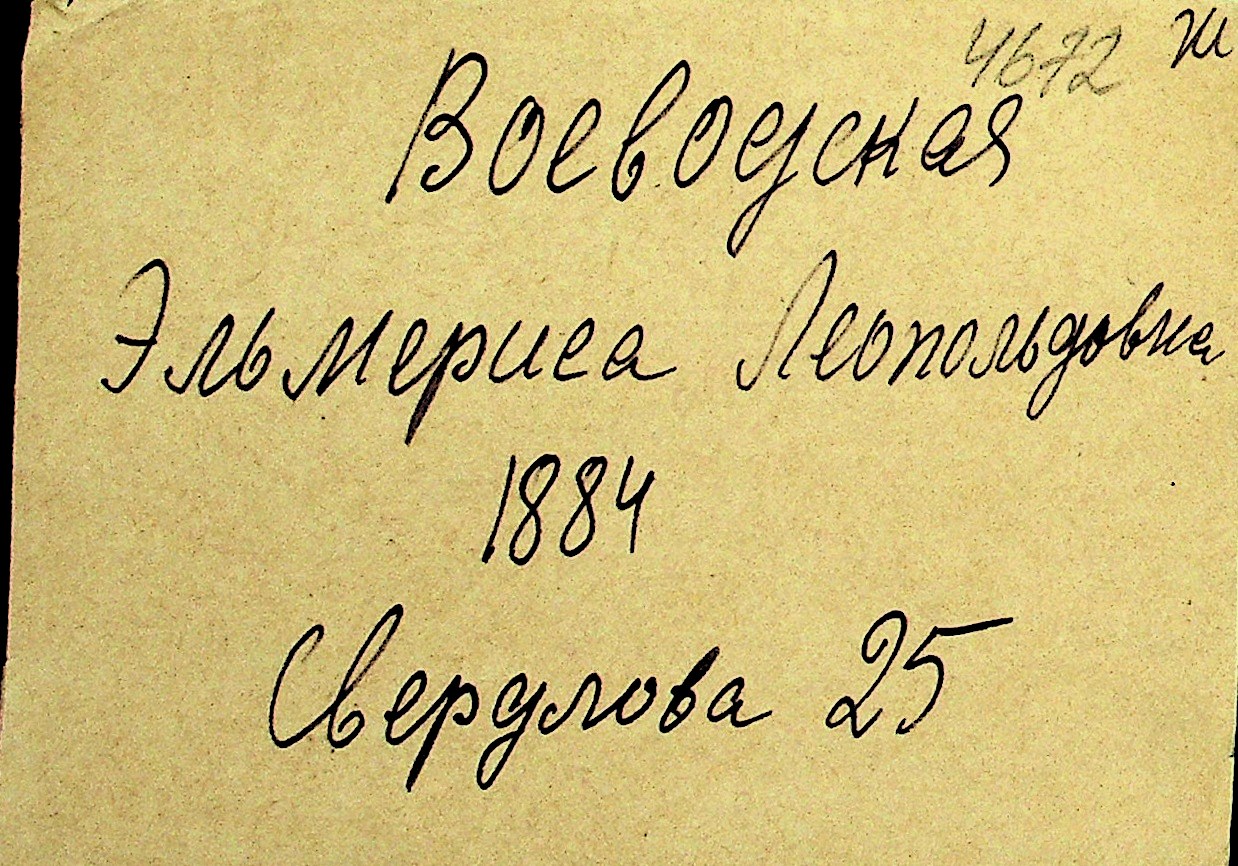 4672 Ж
Воеводская
Эльмериса Леопольдовна
1884
Свердлова 25